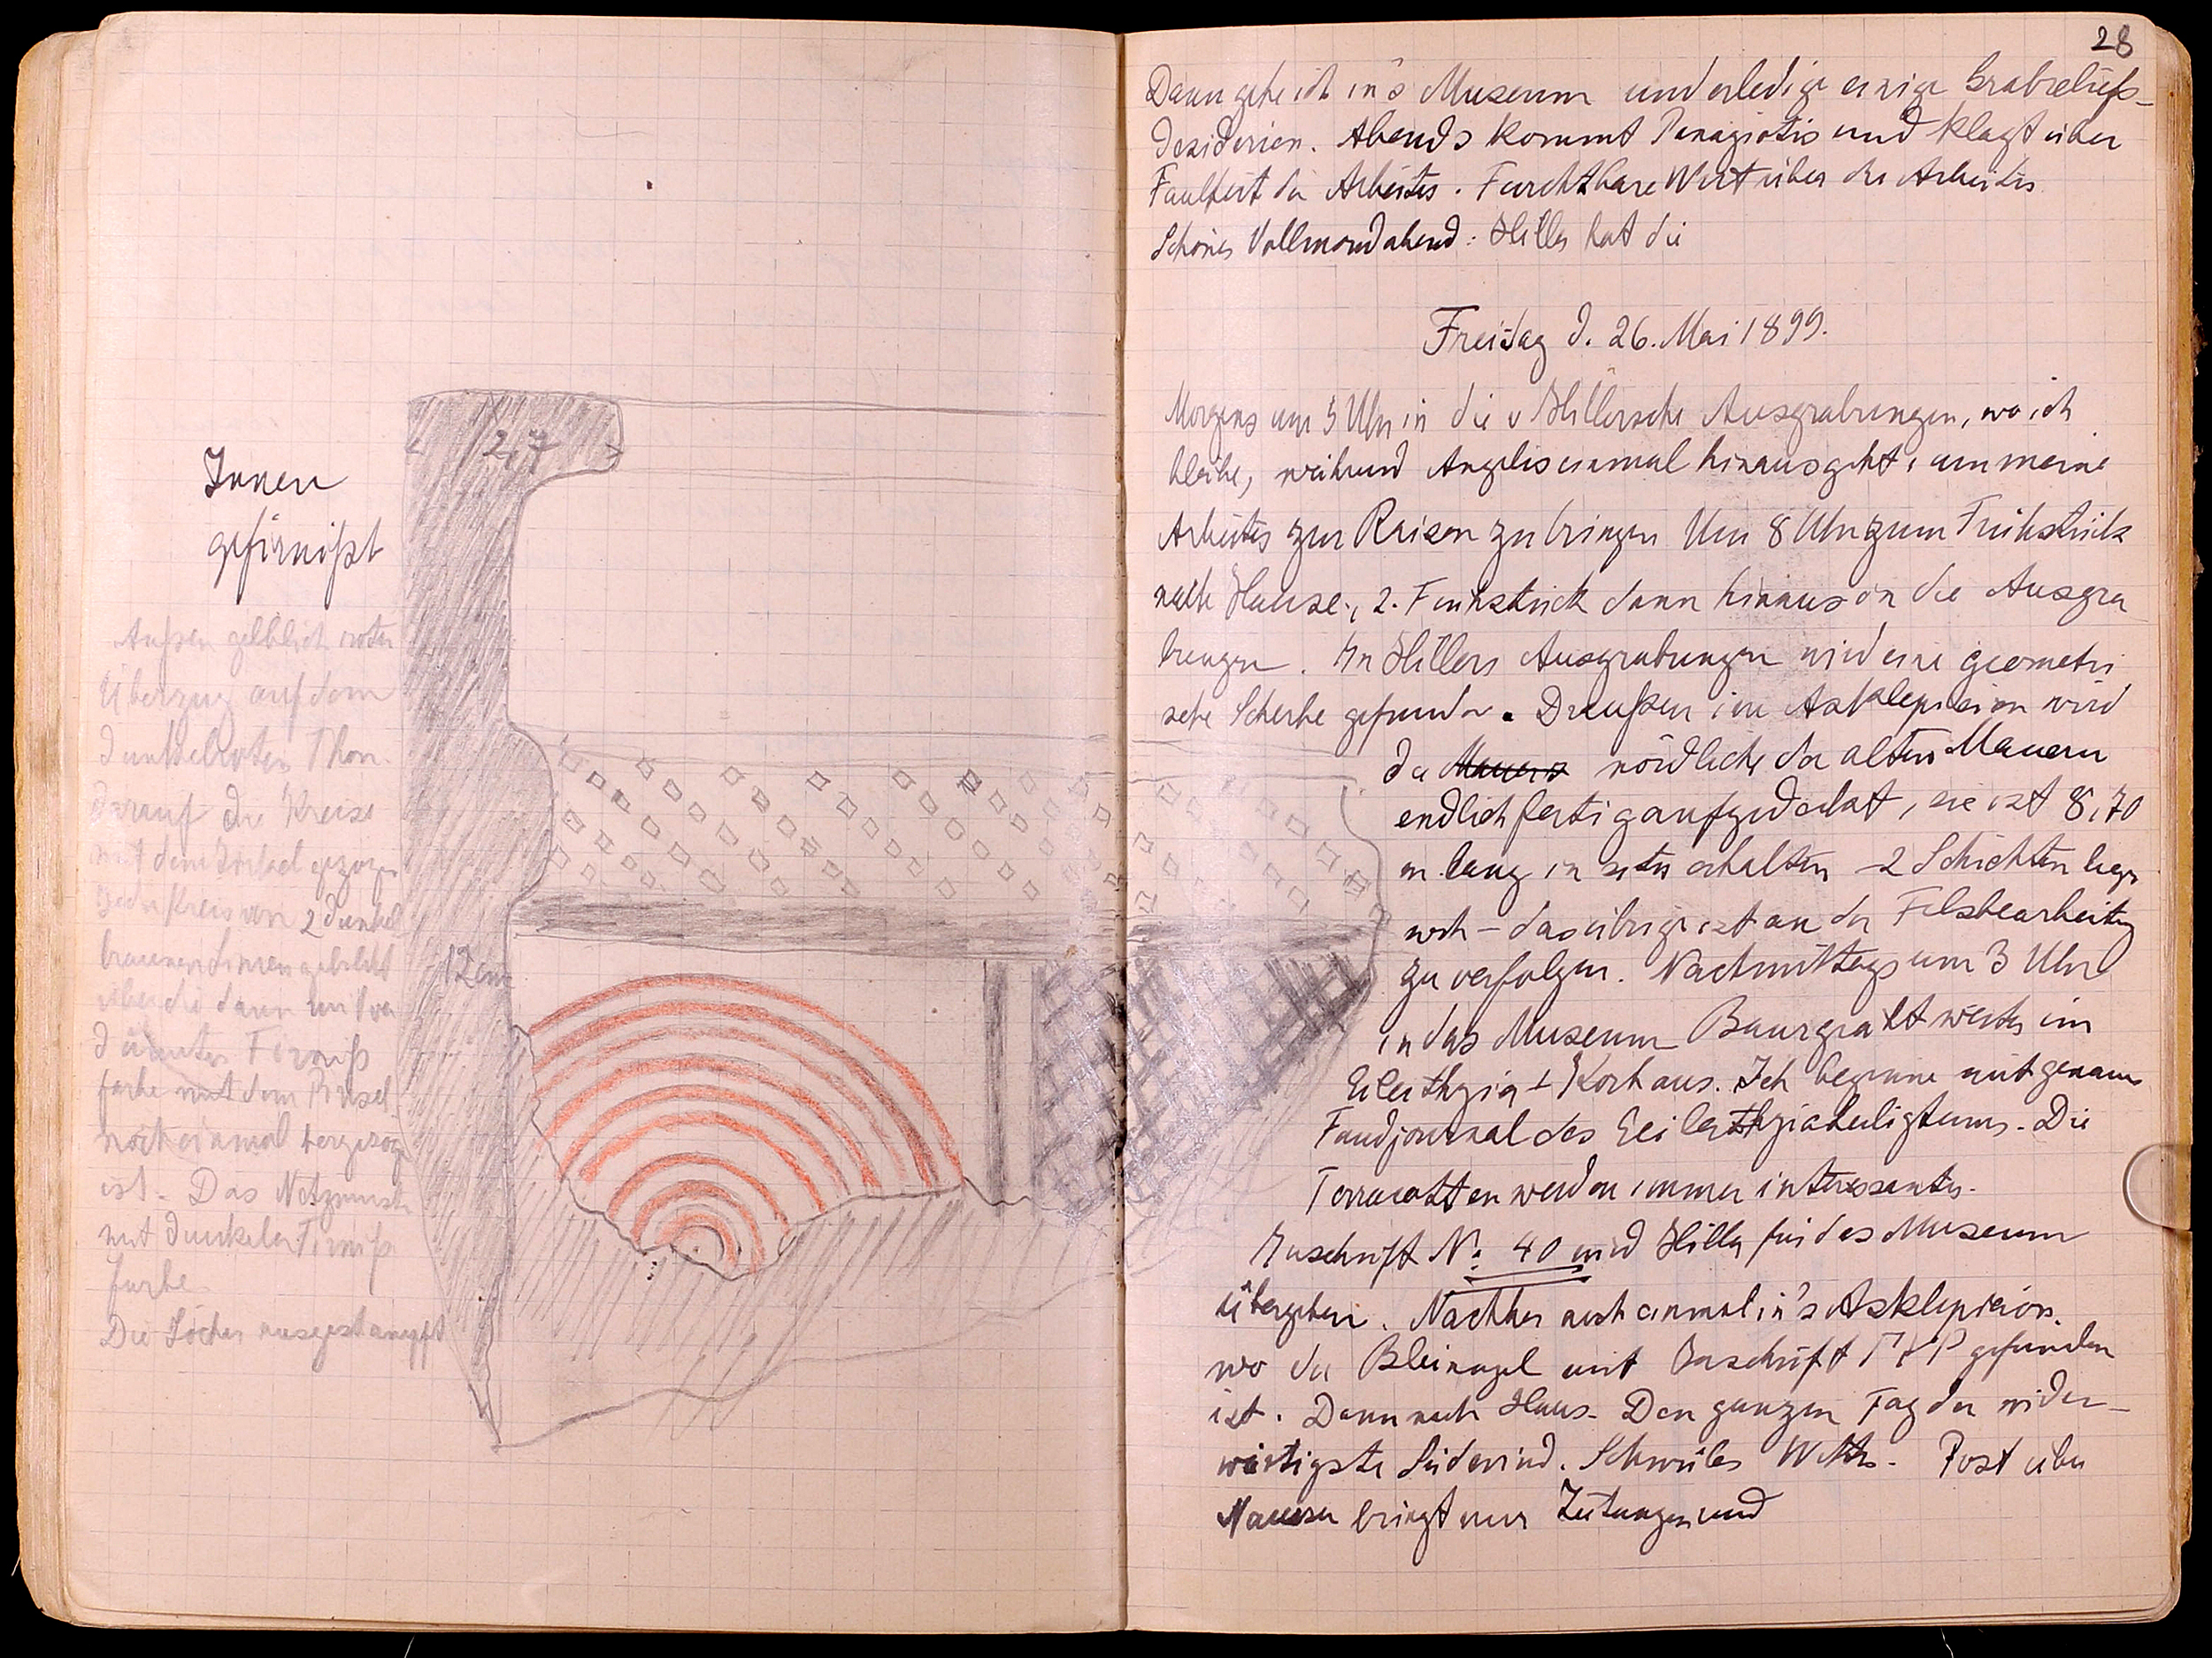 2,7
Innen
gefirnißt
Außen gelblich roter
Überzug auf dem
dunkelroten Thon.
Darauf die Kreise
mit dem Zirkel gezogen
Jeder Kreis von 2 dunkel
braunen Linien gebildet
über die dann mit ver
dünnter Firniß
farbe mit dem Pinsel
noch einmal hergezogen
ist. Das Netzmuster
mit dunkeler Firniß
farbe
Die Löcher ausgestampft
12 cm
28
Dann gehe ich in's Museum und erledige einige Grabreliefs-
desiderien. Abends kommt Panagiotis und klagt über
Faulheit der Arbeiter. Furchtbare Wut über die Arbeiter
Schöner Vollmondabend: Hiller hat die
Freitag d. 26. Mai 1899.
Morgens um 5 Uhr in die v Hillersche Ausgrabungen, wo ich
bleibe, während Angelis einmal hinausgeht, um meine
Arbeiter zur Raison zu bringen Um 8 Uhr zum Frühstück
nach Hause., 2. Frühstück dann hinaus in die Ausgra
bungen. In Hillers Ausgrabungen wird eine geometri
sche Scherbe gefunden. Draußen im Asklepieion wird
die Mauern nördliche der alten Mauern
endlich fertig aufgedeckt, sie ist 8,70
m lang in situ erhalten - 2 Schichten liegen
noch - das übrige ist an der Felsbearbeitung
zu verfolgen. Nachmittags um 3 Uhr
in das Museum Baurgraht weiter im
Eileithyia Ich beginne mit genauem
Fundjournal des Eileithyiaheiligtums. Die
Terracotten werden immer interessanter.
Inschrift N: 40 wird Hiller für das Museum
übergeben. Nachher noch einmal in's Asklepieion,
wo der Bleinagel mit Inschrift gefunden
ist. Dann nach Haus. Den ganzen Tag der wider-
wärtigste Südwind. Schwüles Wetter. Post über
bringt nur Zeitungen und